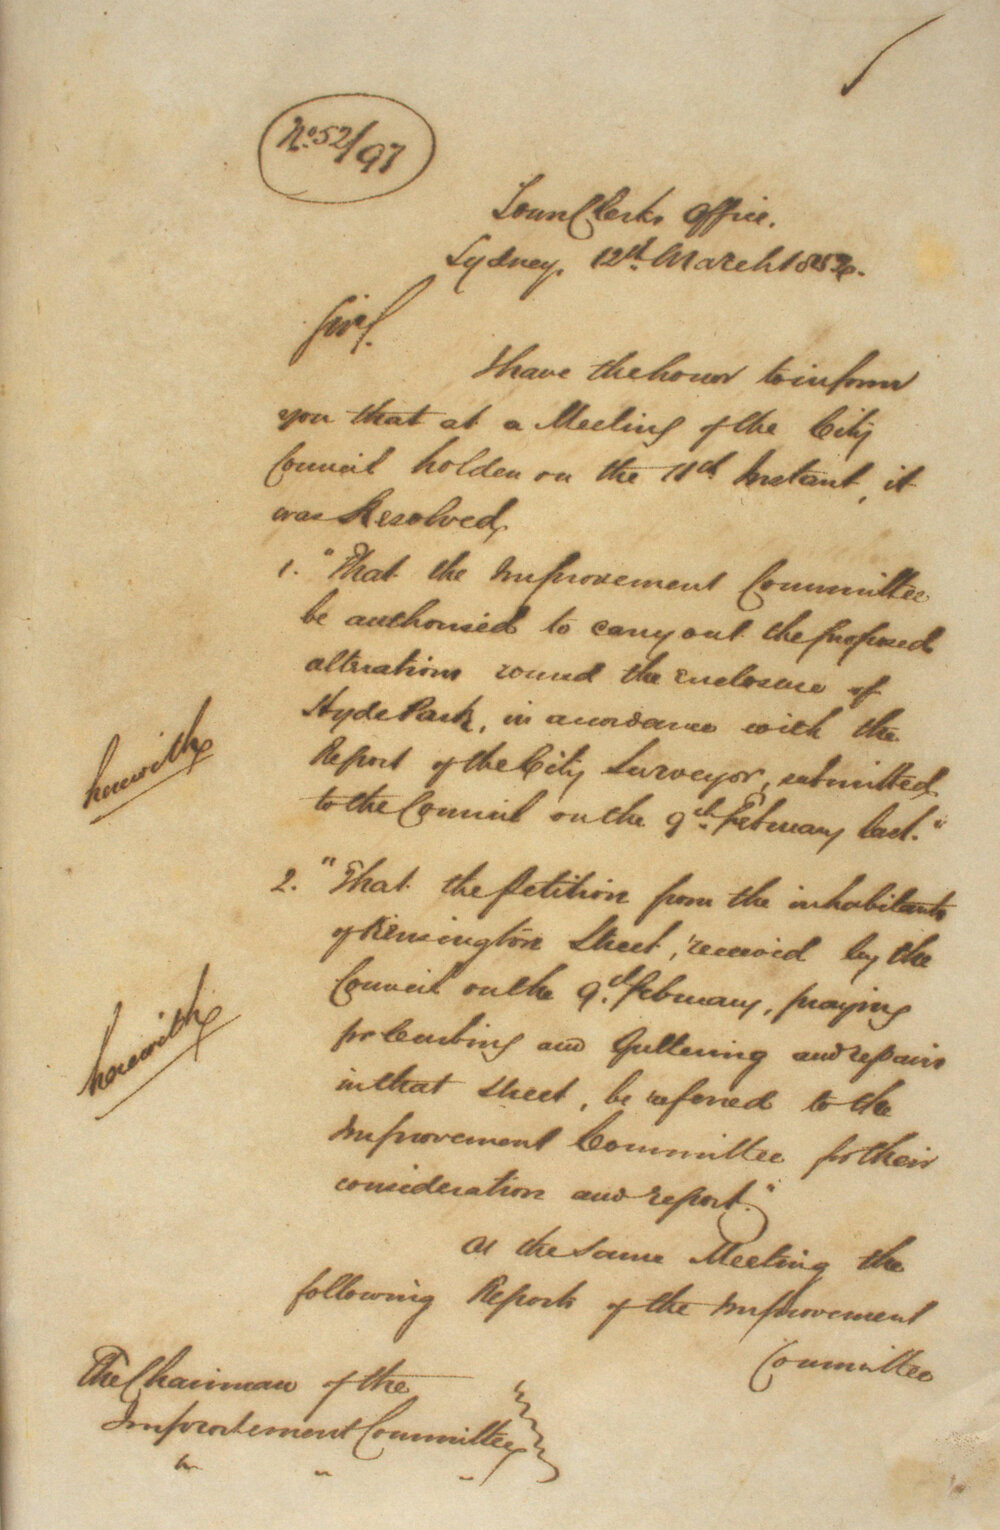 No. 52/97
Town Clerks Office.
Sydney, 12th March 1857.
Sir,
I have the honor to inform
you that at a Meeting of the City
Council holden on the 11th Instant, it
was Resolved,
1. "That the Improvement Committee
be authorised to carry out the proposed
alterations round the enclosure of
Hyde Park, in accordance with the
Report of the City Surveyor, submitted
to the Council on the 9th February last."
herewith
2. "That the Petition from the inhabitants
of Kensington Street, received by the
Council on the 9th February, praying
for Kerbing and Guttering and repairs
in that street, be referred to the
Improvement Committee for their
consideration and report."
herewith
At the same Meeting the
following Reports of the Improvement
Committee
The Chairman of the
Improvement Committee
" " "